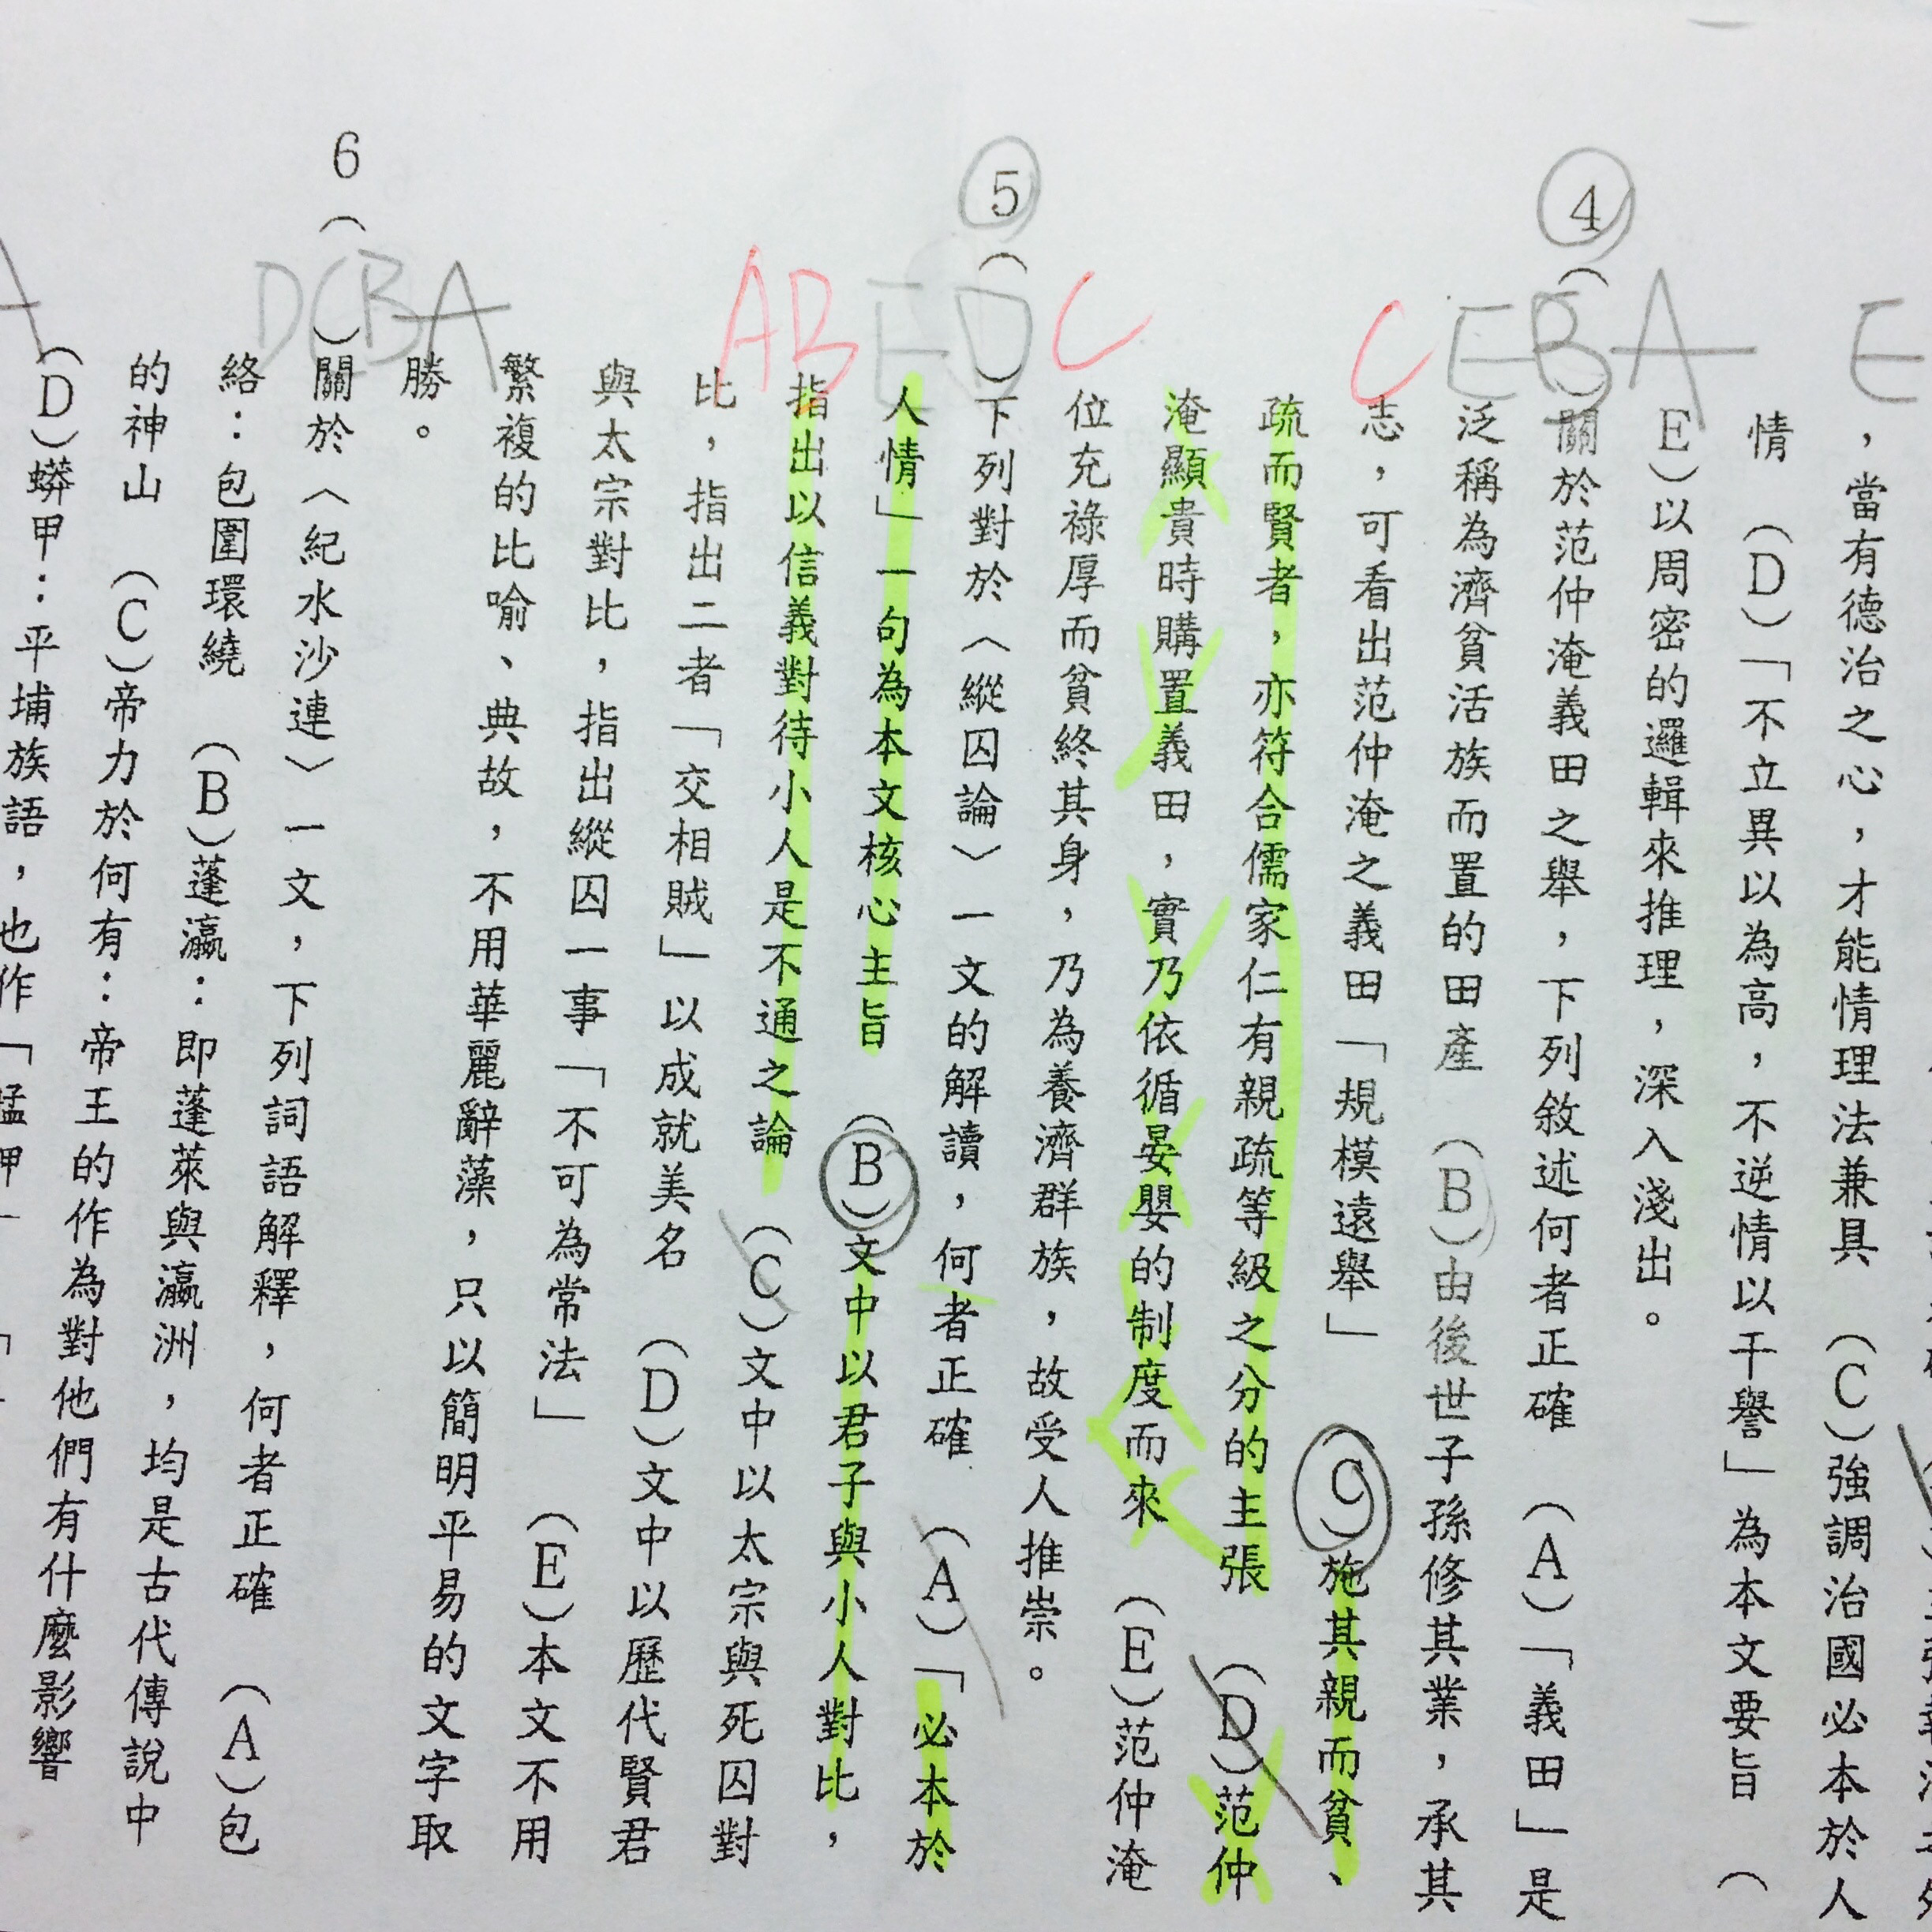 ，當有德治之心，才能情理法兼具　(C)強調治國必本於人
情　(D)「不立異以為高，不逆情以干譽」為本文要旨　(
E)以周密的邏輯來推理，深入淺出。
E
4 (　)關於范仲淹義田之舉，下列敘述何者正確　(A)「義田」是
泛稱為濟貧活族而置的田產　(B)由後世子孫修其業，承其
志，可看出范仲淹之義田「規模遠舉」　(C)施其親而貧、
疏而賢者，亦符合儒家仁有親疏等級之分的主張　(D)范仲
淹顯貴時購置義田，實乃依循晏嬰的制度而來　(E)范仲淹
位充祿厚而貧終其身，乃為養濟群族，故受人推崇。
CEBA
5 (　)下列對於〈縱囚論〉一文的解讀，何者正確　(A)「必本於
人情」一句為本文核心主旨　(B)文中以君子與小人對比，
指出以信義對待小人是不通之論　(C)文中以太宗與死囚對
比，指出二者「交相賊」以成就美名　(D)文中以歷代賢君
與太宗對比，指出縱囚一事「不可為常法」　(E)本文不用
繁複的比喻、典故，不用華麗辭藻，只以簡明平易的文字取
勝。
ABEDC
6 (　)關於〈紀水沙連〉一文，下列詞語解釋，何者正確　(A)包
絡：包圍環繞　(B)蓬瀛：即蓬萊與瀛洲，均是古代傳說中
的神山　(C)帝力於何有：帝王的作為對他們有什麼影響
(D)蟒甲：平埔族語，也作「艋舺」
DCBA
A